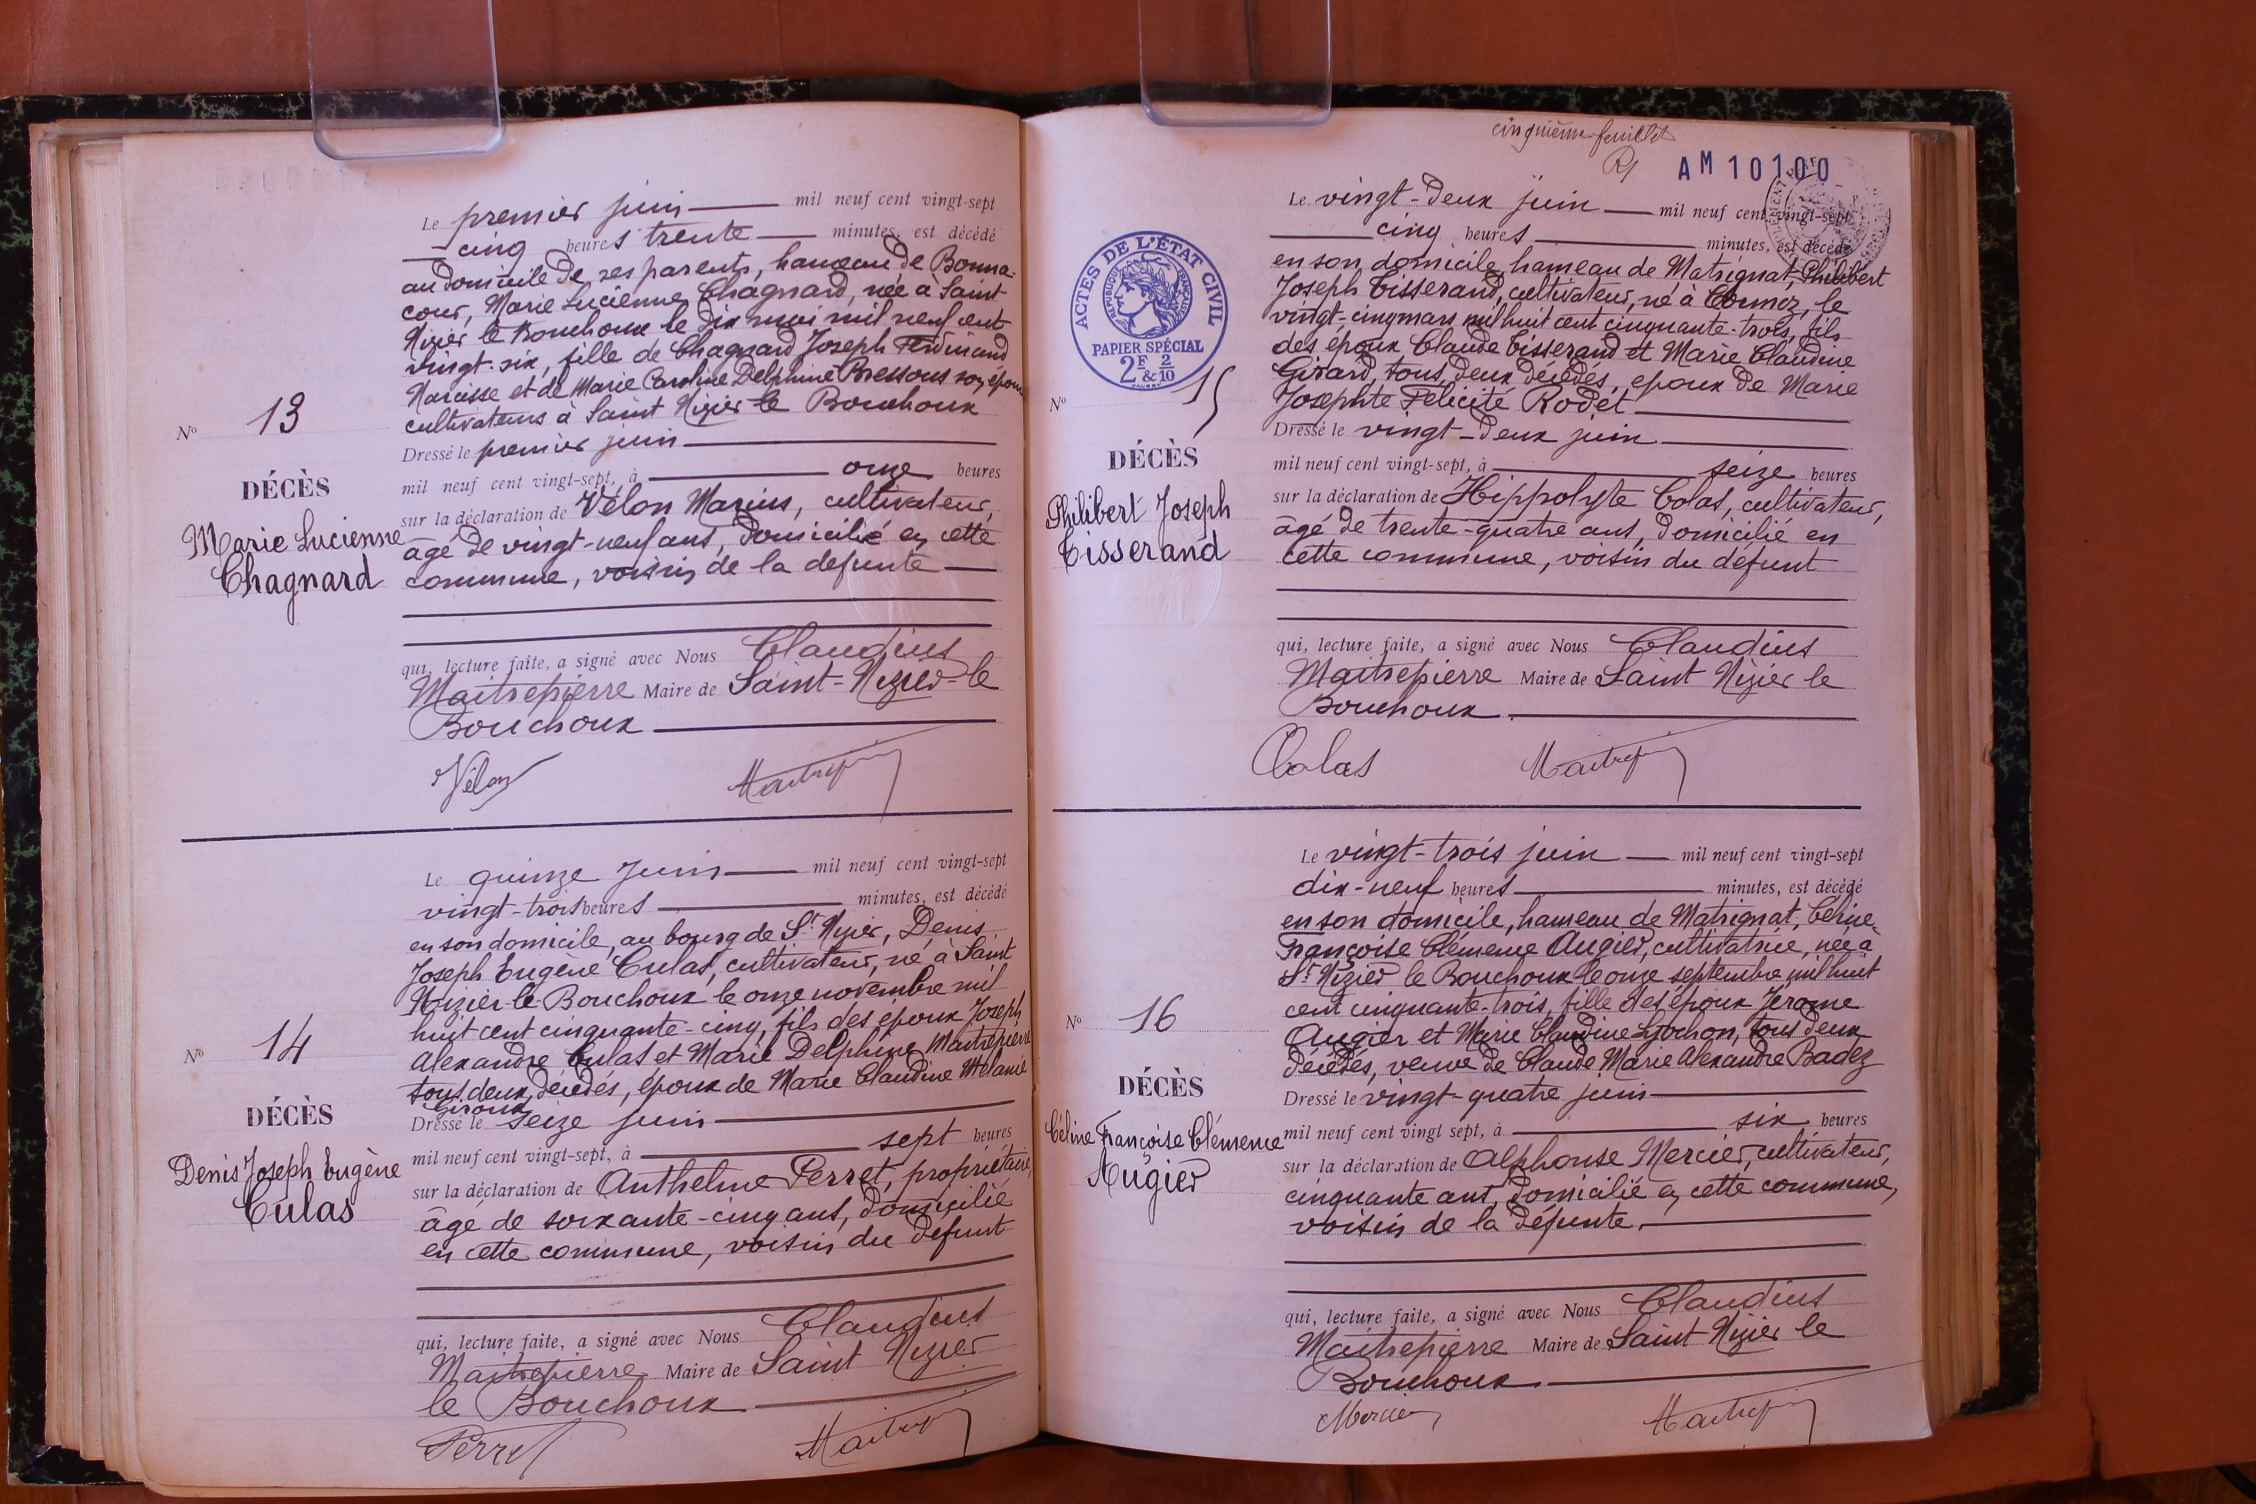 Le premier juin mil neuf cent vingt-sept
cinq heures trente minutes, est décédé
au domicile de ses parents, hameau de Bonna-
cour, Marie Lucienne Chagnard, née à Saint
Nizier le Bouchoux le dix mai mil neuf cent
vingt-six, fille de Chagnard Joseph Ferdinand
Narcisse et de Marie Caroline Delphine Bressous son épouse
cultivateurs à Saint Nizier le Bouchoux
Dressé le premier juin
mil neuf cent vingt-sept, à onze heures
sur la déclaration de Vélon Marius, cultivateur,
âgé de vingt-neuf ans, domicilié en cette
commune, voisin de la défunte
qui, lecture faite, a signé avec Nous Claudius
Maitrepierre Maire de Saint-Nizier-le
Bouchoux
Vélon Maitrepierre
No 13
DÉCÈS
Marie Lucienne
Chagnard
Le quinze juin mil neuf cent vingt-sept
vingt-trois heures minutes, est décédé
en son domicile, au bourg de St Nizier, Denis
Joseph Eugène Culas, cultivateur, né à Saint
Nizier-le-Bouchoux le onze novembre mil
huit cent cinquante-cinq, fils des époux Joseph
Alexandre Culas et Marie Delphine Maitrepierre
tous deux décédés, époux de Marie Claudine Mélanie
Giroux
Dressé le seize juin
mil neuf cent vingt-sept, à sept heures
sur la déclaration de Anthelme Perret, propriétaire,
âgé de soixante-cinq ans, domicilié
en cette commune, voisin du défunt
qui, lecture faite, a signé avec Nous Claudius
Maitrepierre Maire de Saint Nizier
le Bouchoux
Perret Maitrepierre
No 14
DÉCÈS
Denis Joseph Eugène
Culas
cinquième feuillet
AM 10100
ACTES DE L'ÉTAT CIVIL
RÉPUBLIQUE FRANÇAISE
PAPIER SPÉCIAL
2F & 2/10
Le vingt-deux juin mil neuf cent vingt-sept
cinq heures minutes, est décédé
en son domicile, hameau de Matrignat, Philibert
Joseph Tisserand, cultivateur, né à Cormoz, le
vingt-cinq mars mil huit cent cinquante-trois, fils
des époux Claude Tisserand et Marie Claudine
Girard, tous deux décédés, époux de Marie
Josephte Félicité Rodet
Dressé le vingt-deux juin
mil neuf cent vingt-sept, à seize heures
sur la déclaration de Hippolyte Colas, cultivateur,
âgé de trente-quatre ans, domicilié en
cette commune, voisin du défunt
qui, lecture faite, a signé avec Nous Claudius
Maitrepierre Maire de Saint Nizier le
Bouchoux
Colas Maitrepierre
No 15
DÉCÈS
Philibert Joseph
Tisserand
Le vingt-trois juin mil neuf cent vingt-sept
dix-neuf heures minutes, est décédé
en son domicile, hameau de Matrignat, Céline
Françoise Clémence Augier, cultivatrice, née à
St Nizier le Bouchoux le onze septembre mil huit
cent cinquante-trois, fille des époux Jérome
Augier et Marie Claudine Lochon, tous deux
décédés, veuve de Claude Marie Alexandre Badez
Dressé le vingt-quatre juin
mil neuf cent vingt sept, à six heures
sur la déclaration de Alphonse Mercier, cultivateur,
cinquante ans, domicilié en cette commune,
voisin de la défunte.
qui, lecture faite, a signé avec Nous Claudius
Maitrepierre Maire de Saint Nizier le
Bouchoux
Mercier Maitrepierre
No 16
DÉCÈS
Céline Françoise Clémence
Augier